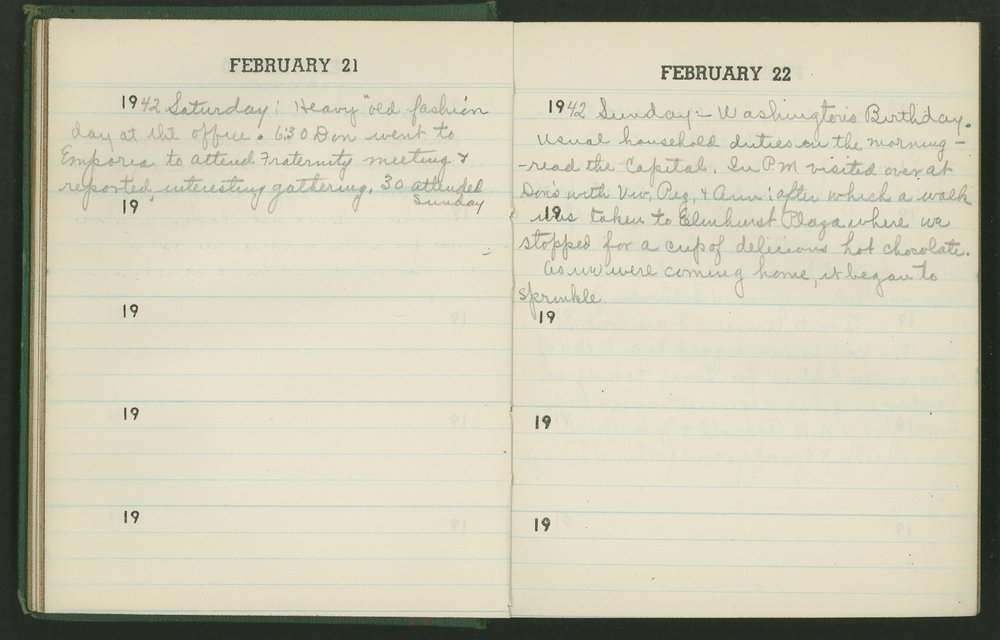 FEBRUARY 21
1942 Saturday: Heavy "old fashion
day at the office. 6:30 Don went to
Emporia to attend Fraternity meeting &
reported interesting gathering, 30 attended
Sunday
19
19
19
19
FEBRUARY 22
1942 Sunday - Washington's Birthday.
Usual household duties in the morning -
- read the Capital. In P.M visited over at
Don's with Viv, Peg, & Ann: after which a walk
19
was taken to Elmhurst Plaza where we
stopped for a cup of delicious hot chocolate.
As we were coming home, it began to
sprinkle
19
19
19